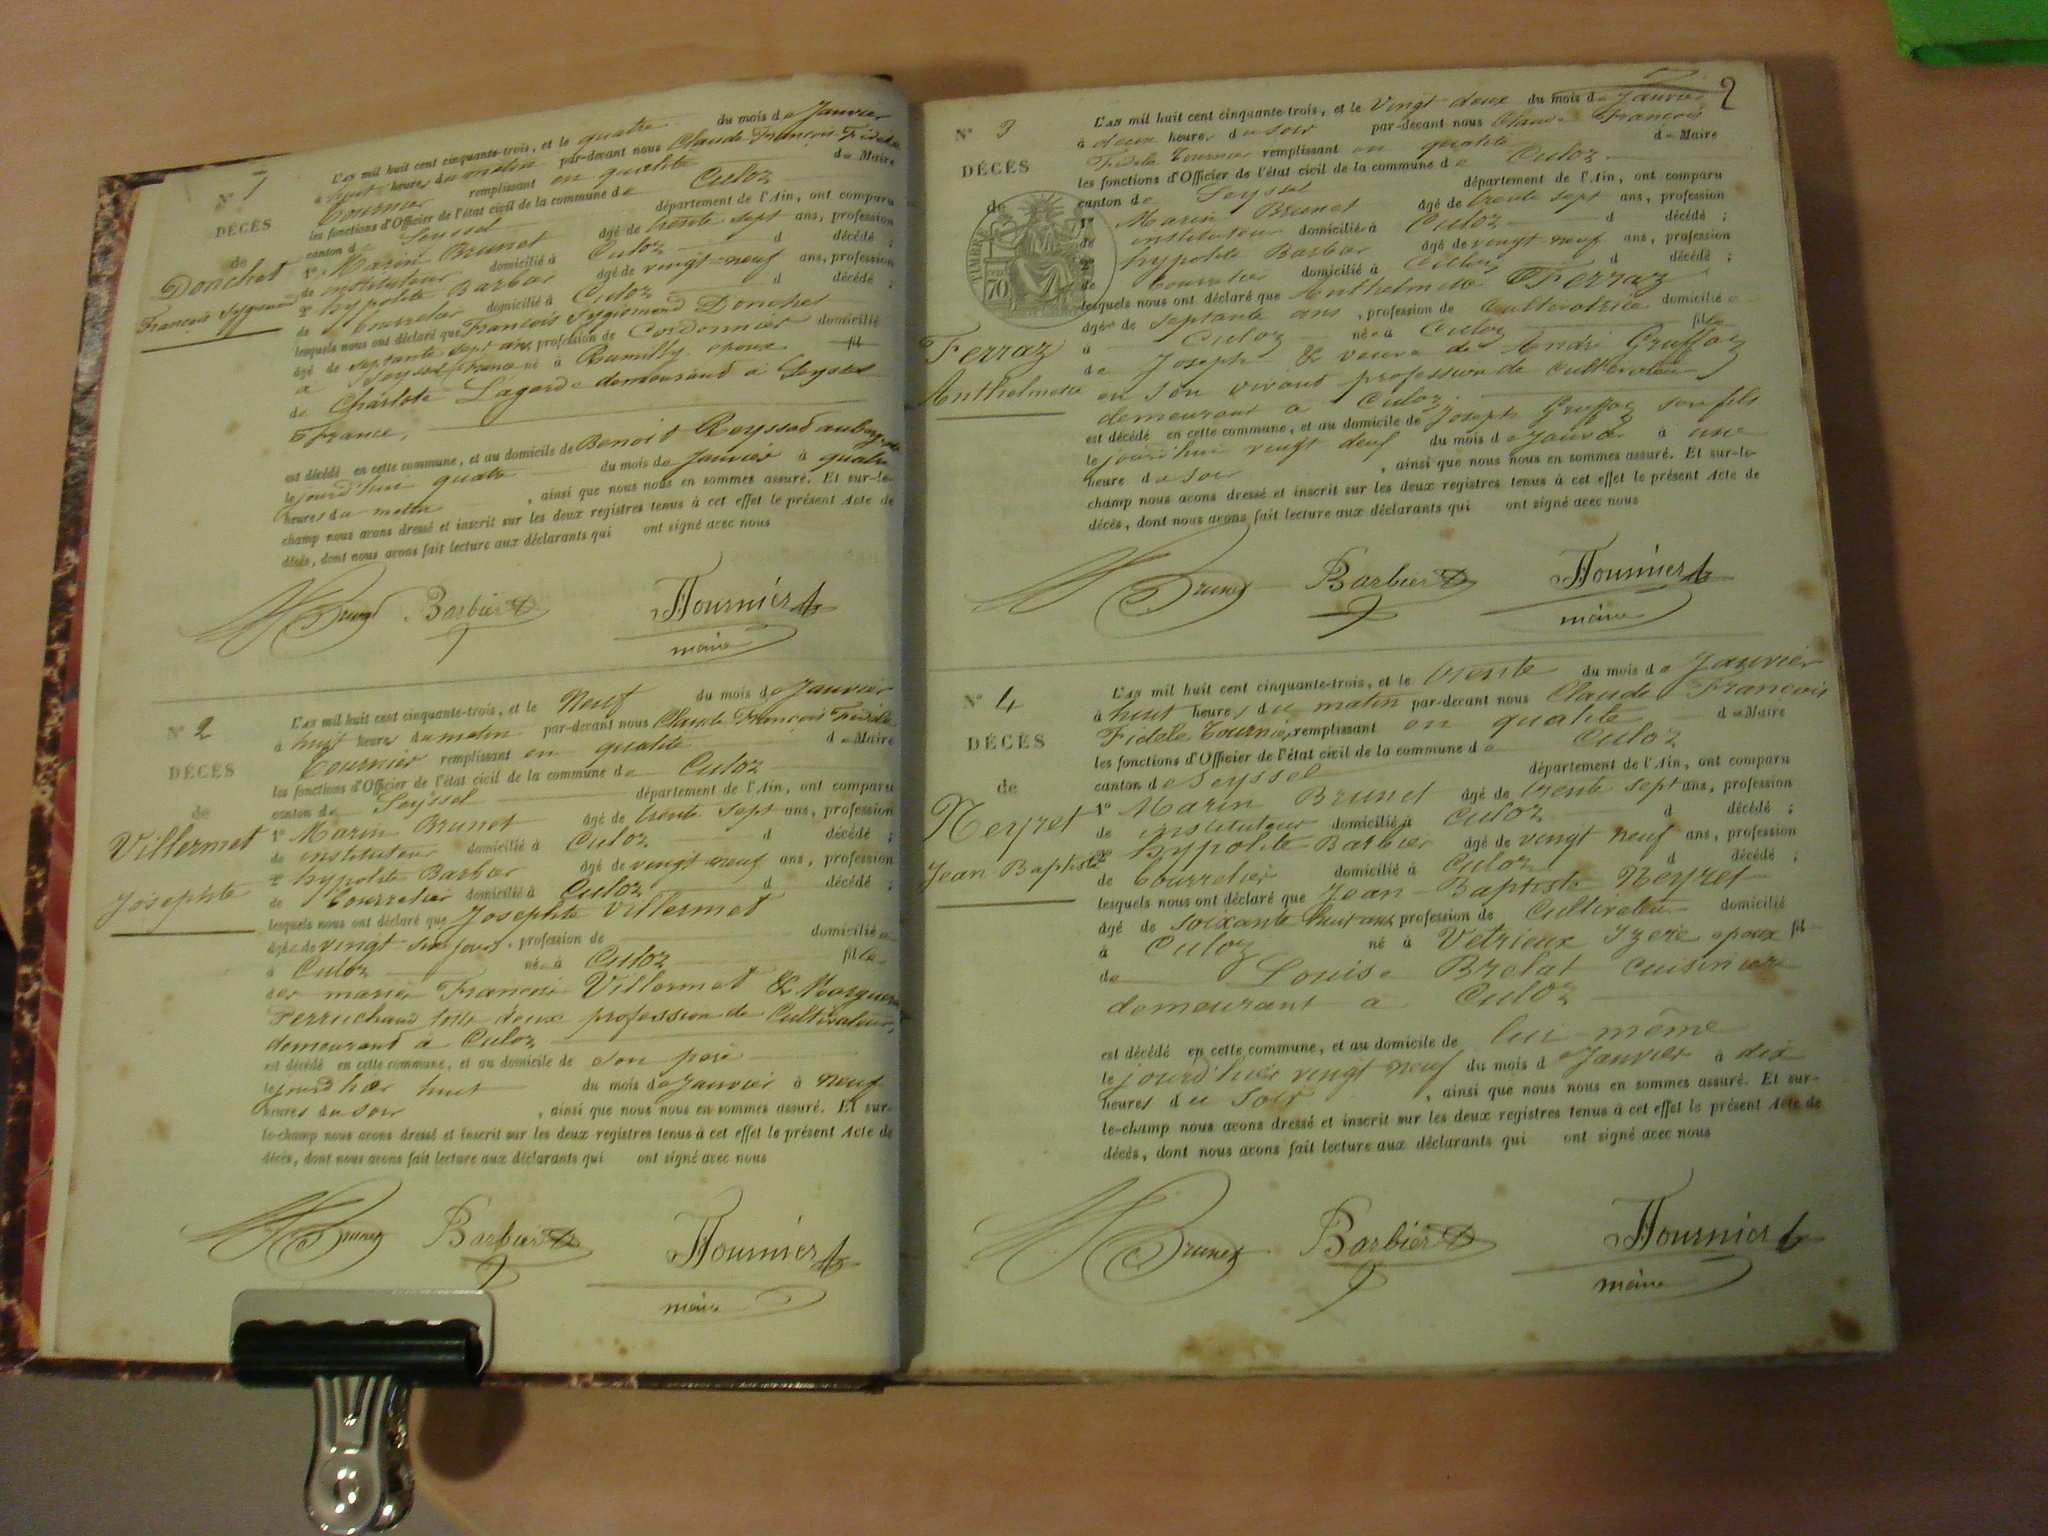 N° 1
DÉCÈS
de
Donchet
François Sygismond
L'an mil huit cent cinquante-trois, et le quatre du mois de Janvier
à huit heures du matin par-devant nous Claude François Fidele
Tournier remplissant en qualité de Maire
les fonctions d'Officier de l'état civil de la commune de Culoz
canton de Seyssel département de l'Ain, ont comparu
1° Marin Brunet âgé de trente sept ans, profession
de instituteur domicilié à Culoz d décédé ;
2° hypolite Barbar âgé de vingt-neuf ans, profession
de bourrelar domicilié à Culoz d décédé ;
lesquels nous ont déclaré que François Sygismond Donchet
âgé de septante sept ans, profession de Cordonnier domicilié
à Seyssel france né à Rumilly epoux fil
de Charlote Lagorde demeurand a Seyssel
France,
est décédé en cette commune, et au domicile de Benoit Reyssad
le jourd'hui quatre du mois de Janvier à quatre
heures du matin , ainsi que nous nous en sommes assuré. Et sur-le-
champ nous avons dressé et inscrit sur les deux registres tenus à cet effet le présent Acte de
décès, dont nous avons fait lecture aux déclarants qui ont signé avec nous
Brunet Barbier Tournier
maire
N° 2
DÉCÈS
de
Villermet
Josephte
L'an mil huit cent cinquante-trois, et le Neuf du mois de Janvier
à huit heures du matin par-devant nous Claude François Fidéle
Tournier remplissant en qualité de Maire
les fonctions d'Officier de l'état civil de la commune de Culoz
canton de Seyssel département de l'Ain, ont comparu
1° Marin Brunet âgé de trente sept ans, profession
de instituteur domicilié à Culoz d décédé ;
2° hypolite Barbar âgé de vingt neuf ans, profession
de bourrelier domicilié à Culoz d décédé ;
lesquels nous ont déclaré que Josephte Villermet
âgée de vingt six jours, profession de domiciliée
à Culoz née à Culoz fille
des mariés François Villermet &
Perruchaud tous deux profession de Cultivateur,
demeurand à Culoz
est décédé en cette commune, et au domicile de son pere
le jourd'hier huit du mois de Janvier à neuf
heures du soir , ainsi que nous nous en sommes assuré. Et sur-
le-champ nous avons dressé et inscrit sur les deux registres tenus à cet effet le présent Acte de
décès, dont nous avons fait lecture aux déclarants qui ont signé avec nous
Brunet Barbier Tournier
maire
2
N° 3
DÉCÈS
de
TIMBRE
70
Ferraz
Anthelmette
L'an mil huit cent cinquante-trois, et le Vingt deux du mois de Janvier
à deux heures du soir par-devant nous Claude François
Fidele Tournier remplissant en qualité de Maire
les fonctions d'Officier de l'état civil de la commune de Culoz
canton de Seyssel département de l'Ain, ont comparu
1° Marin Brunet âgé de trente sept ans, profession
de instituteur domicilié à Culoz d décédé ;
2° hypolite Barbar âgé de vingt-neuf ans, profession
de bourrelier domicilié à Culoz d décédé ;
lesquels nous ont déclaré que Anthelmette Ferraz
âgée de septante ans, profession de Cultivatrice domiciliée
à Culoz née à Culoz fille
de Joseph & veuve de André Gruffaz
en son vivant profession de cultivateur
demeurant a Culoz
est décédé en cette commune, et au domicile de Joseph Gruffaz son fils
le jourd'hui vingt deux du mois de Janvier à une
heure du soir , ainsi que nous nous en sommes assuré. Et sur-le-
champ nous avons dressé et inscrit sur les deux registres tenus à cet effet le présent Acte de
décès, dont nous avons fait lecture aux déclarants qui ont signé avec nous
Brunet Barbier Tournier
maire
N° 4
DÉCÈS
de
Neyret
Jean Baptiste
L'an mil huit cent cinquante-trois, et le trente du mois de Janvier
à huit heures du matin par-devant nous Claude François
Fidele Tournier remplissant en qualité de Maire
les fonctions d'Officier de l'état civil de la commune de Culoz
canton de Seyssel département de l'Ain, ont comparu
1° Marin Brunet âgé de trente sept ans, profession
de instituteur domicilié à Culoz d décédé ;
2° hypolite Barbier âgé de vingt neuf ans, profession
de bourrelier domicilié à Culoz d décédé ;
lesquels nous ont déclaré que Jean-Baptiste Neyret
âgé de soixante huit ans, profession de Cultivateur domicilié
à Culoz né à Vetrieux Izere epoux fil
de Louise Brelat cuisiniere
demeurant a Culoz
est décédé en cette commune, et au domicile de lui-même
le jourd'hier vingt neuf du mois de Janvier à dix
heures du soir , ainsi que nous nous en sommes assuré. Et sur-
le-champ nous avons dressé et inscrit sur les deux registres tenus à cet effet le présent Acte de
décès, dont nous avons fait lecture aux déclarants qui ont signé avec nous
Brunet Barbier Tournier
maire